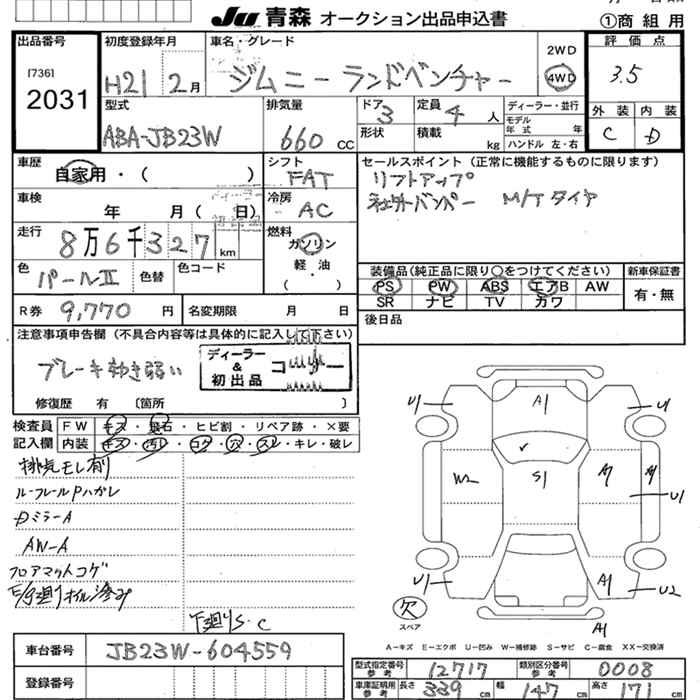 Ju 青森 オークション出品申込書
①商組用
出品番号
[736]
2031
初度登録年月
H21 2月
車名・グレード
ジムニー ランドベンチャー
2WD
4WD
評価点
3.5
外装 内装
C D
型式
ABA-JB23W
排気量
660 CC
ドア 3
形状
定員 4 人
積載 kg
ディーラー・並行
モデル年式 年
ハンドル 左・右
車歴
自家用・( )
シフト
FAT
車検
年 月( 日)
冷房
AC
走行
8万6千327km
燃料
ガソリン
軽・油
( )
色
パールⅡ
色替
色コード
R券 9,770円
名変期限 月 日
セールスポイント(正常に機能するものに限ります)
リフトアップ
社外バンパー M/Tタイヤ
装備品(純正品に限り○をつけてください)
PS PW ABS エアB AW
SR ナビ TV カワ
新車保証書
有・無
後日品
注意事項申告欄(不具合内容等は具体的に記入して下さい)
ブレーキ効き弱い
ディーラー
&
初出品
コーナー
修復歴 有 〔箇所 〕
検査員記入欄
FW キズ・飛石・ヒビ割・リペア跡・×要
内装 キズ・汚レ・コゲ・穴・スレ・キレ・破レ
排気モレ有り
ルーフレールPハガレ
DミラーA
AW-A
フロアマットコゲ
E/G廻りオイル滲み
下廻りS・C
U1
A1
U1
W2
S1
A1
A1
U1
U1
A1
U2
A1
欠
スペア
A-キズ E-エクボ U-凹み W-補修跡 S-サビ C-腐食 XX-交換済
車台番号
JB23W-604559
登録番号
型式指定番号 参考
12717
類別区分番号 参考
0008
車庫証明用 参考
長さ 339 cm
幅 147 cm
高さ 171 cm